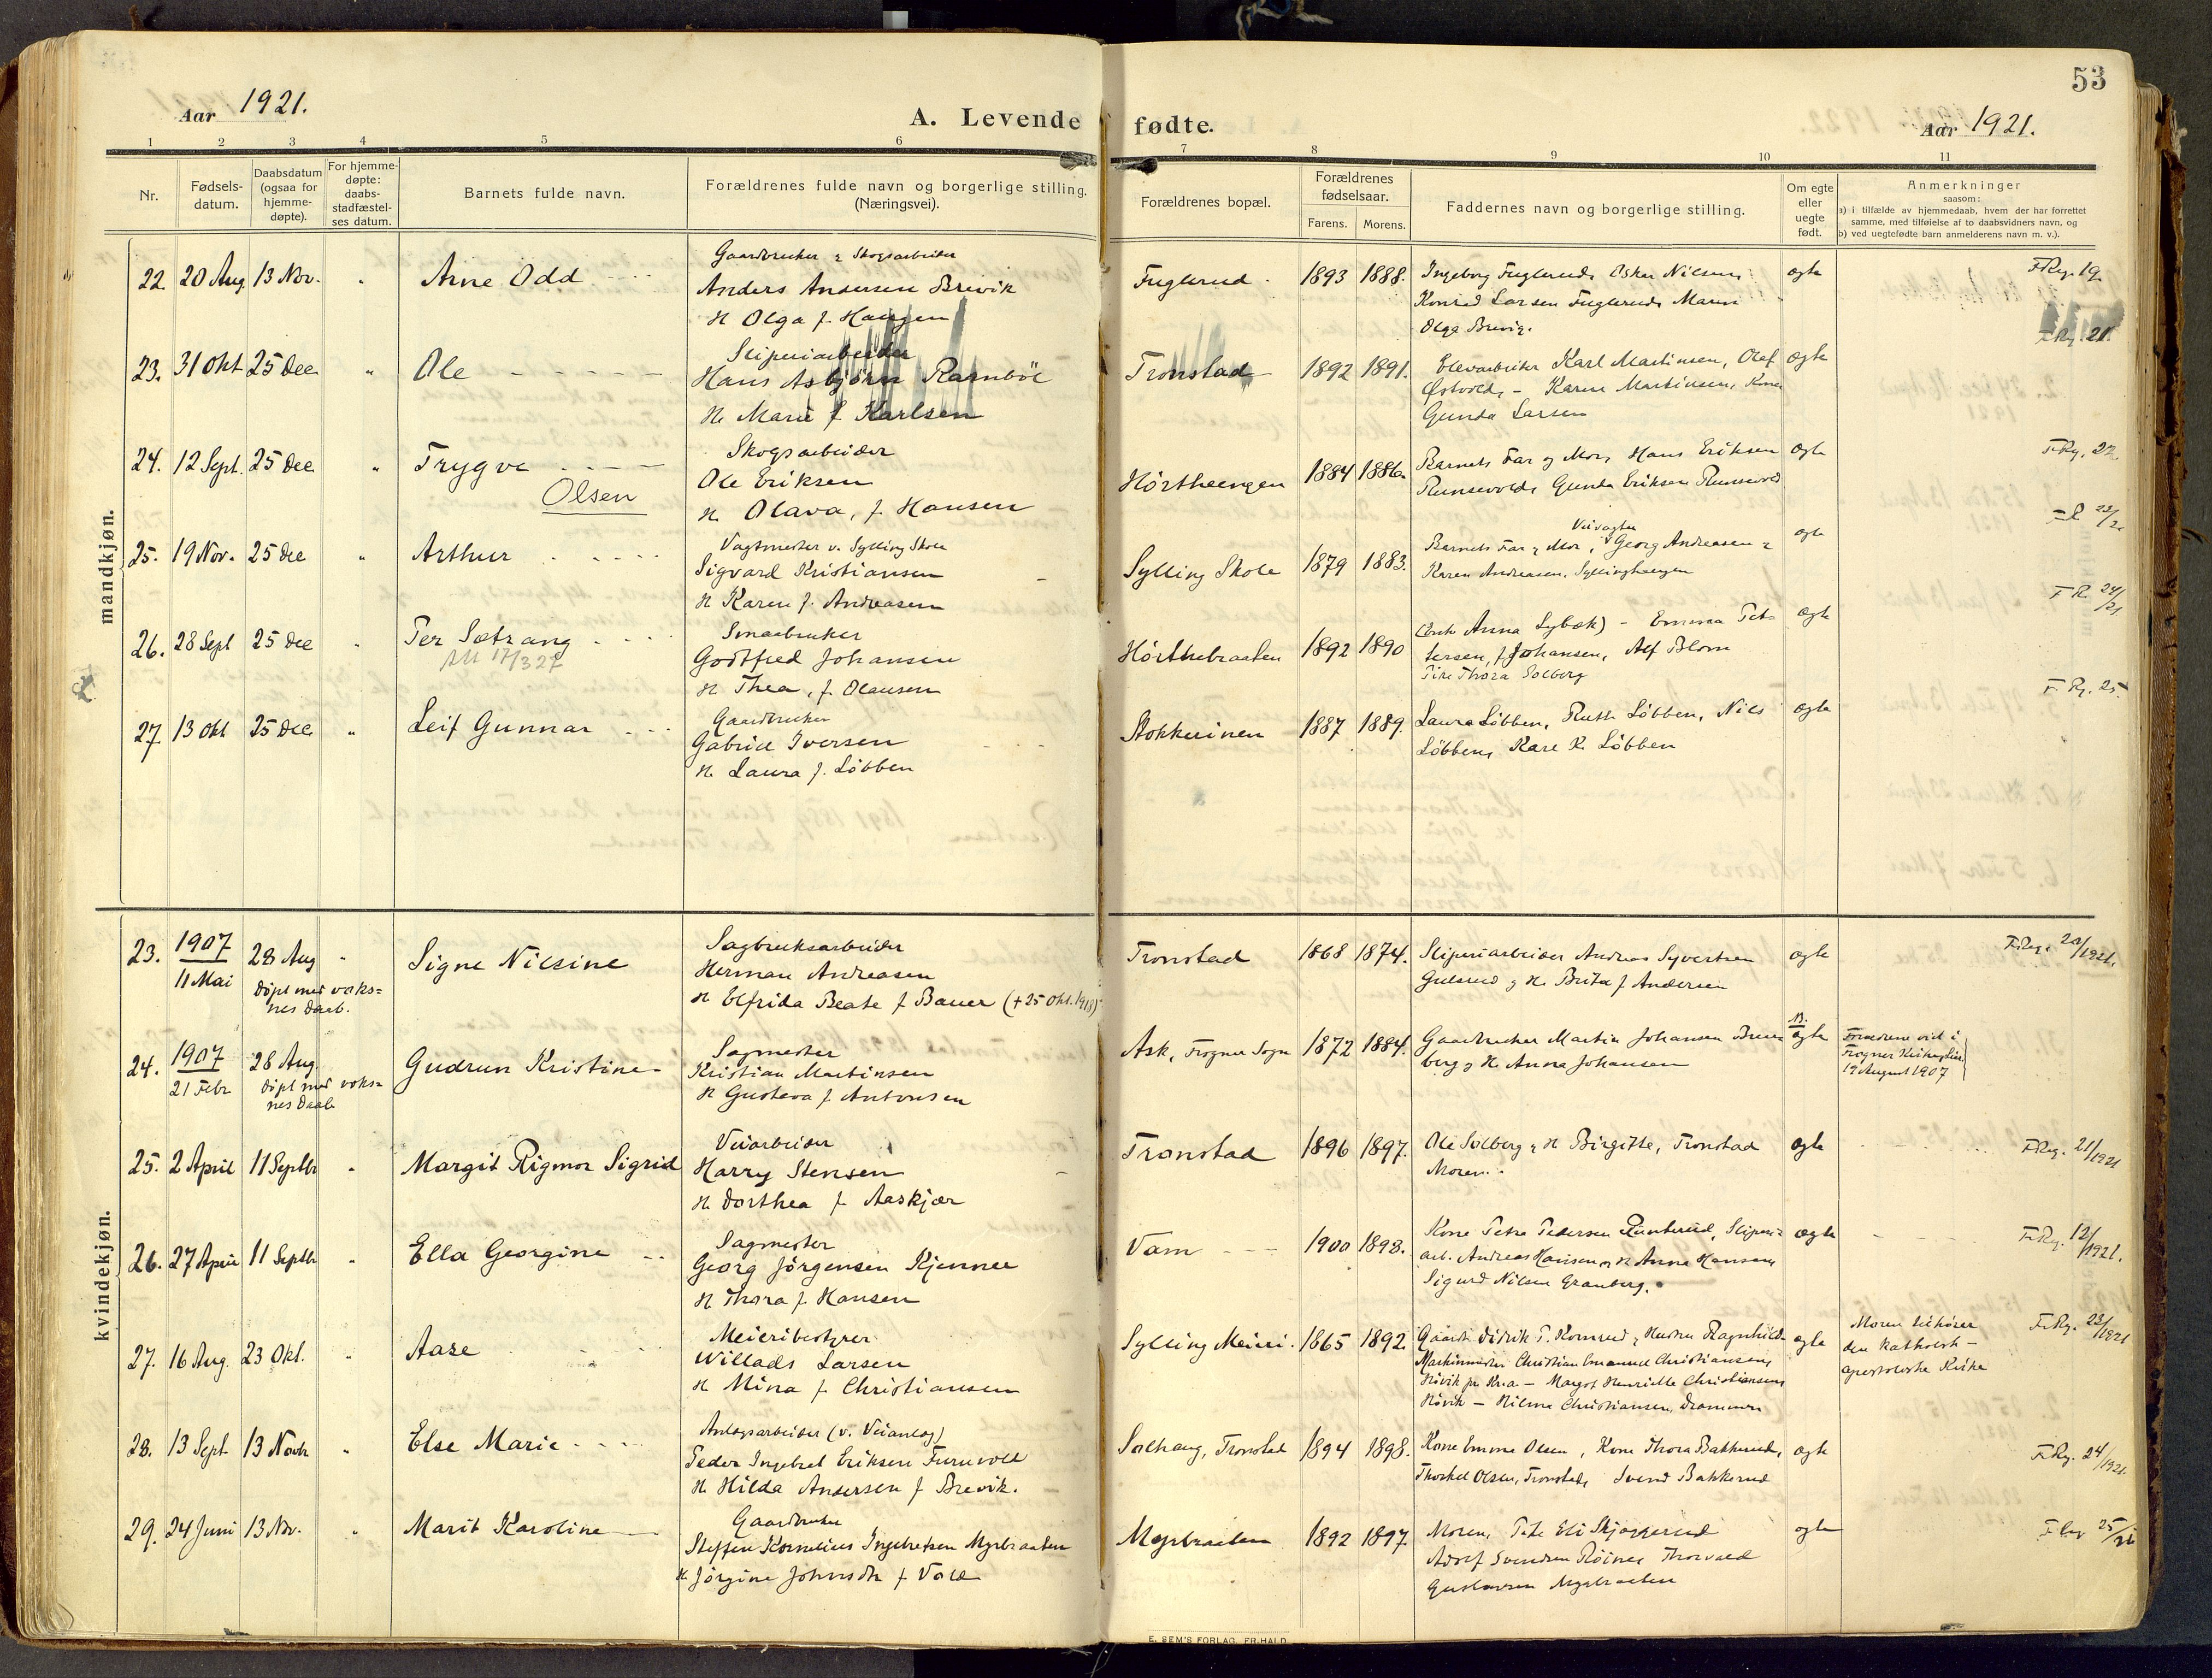 53
Aar 1921.
A. Levende fødte.
Aar 1921.
1 2 3 4 5 6 7 8 9 10 11
Nr.
Fødsels-
datum.
Daabsdatum
(ogsaa for
hjemme-
døpte).
For hjemme-
døpte:
daabs-
stadfæstel-
ses datum.
Barnets fulde navn.
Forældrenes fulde navn og borgerlige stilling.
(Næringsvei).
Forældrenes bopæl.
Forældrenes
fødselsaar.
Farens. Morens.
Faddernes navn og borgerlige stilling.
Om egte
eller
uegte
født.
Anmerkninger
saasom:
a) i tilfælde av hjemmedaab, hvem der har forrettet
samme, med tilføielse af to daabsvidners navn, og
b) ved uegtefødte barn anmelderens navn m. v.).
mandkjøn.
22. 20 Aug. 13 Nov. " Arne Odd
Gaardbruker & Skogsarbeider
Anders Andersen Brevik
H. Olga f. Haugen
Fuglerud 1893 1888.
Ingeborg Fuglerud, Oskar Nilsen,
Konrad Larsen Fuglerud, Maren
Olga Brevig.
egte
F.Reg. 19.
23. 31 Okt 25 Dec. " Ole
Sliperiarbeider
Hans Asbjørn Rambøl
H. Marie f. Karlsen
Tronstad 1892 1891.
Elevarbeider Karl Martinsen, Olaf
Østvold, - Karen Martinsen, Kone
Gunda Larsen
egte
F.Rg. 21.
24. 12 Sept. 25 Dec. " Trygve
Olsen
Skogsarbeider
Ole Eriksen
H. Olava, f. Hansen
Hørtheengen 1884 1886.
Barnets Far og Mor, Hans Eriksen
Runsevold, Gunda Eriksen Runsevold
egte
F.Rg. 22.
25. 19 Nov. 25 Dec " Arthur
Vagtmester v. Sylling Skole
Sigvard Kristiansen
H. Karen f. Andreasen
Sylling Skole 1879 1883.
Veivogter
Barnets Far & Mor, Georg Andreasen &
Karen Andreasen, Syllinghaugen
egte
F.R. 23/21
26. 28 Sept 25 Dec " Per Sætrang
17/3 27
Smaabruker
Godtfred Johansen
H. Thea, f. Olausen
Hørthebraaten 1892 1890
(Enke Anna Sylbæk) - Emma Pet-
tersen, f. Johansen, Alf Blom
Pike Thora Solberg
egte
F.R. 24/21
27. 13 Okt 25 Dec. " Leif Gunnar
Gaardbruker
Gabriel Iversen
H. Laura f. Løbben
Stokkerinen 1887 1889.
Laura Løbben, Ruth Løbben, Nils
Løbben, Kare K. Løbben
egte
F.Rg. 25.
kvindekjøn.
23. 1907
11 Mai
28 Aug
Døpt med voks-
nes Daab.
" Signe Nilsine
Sagbruksarbeider
Herman Andreasen
H. Elfrida Beate f. Bauer (+ 25 Okt. 1918)
Tronstad 1868 1874.
Sliperiarbeider Andreas Syvertsen
Gulsrud og H. Brita f. Andersen
egte
F.Reg. 20/1921.
24. 1907
21 Febr
28 Aug.
Døpt med voks-
nes Daab
Gudrun Kristine
Sagmester
Kristian Martinsen
H. Gustava f. Antonsen
Ask, Frogner Sogn 1872 1884.
Gaardbruker Martin Johansen
berg og H. Anna Johansen
egte
Foreldrene viet i
Frogner Kirke,
19 August 1907
25. 2 April 11 Septbr " Margit Rigmor Sigrid
Veiarbeider
Harry Stensen
H. Dorthea f. Aaskjær
Tronstad 1896 1897.
Ole Solberg & H. Birgitte, Tronstad
Moren.
egte
F.Reg. 21/1921
26. 27 April 11 Septbr " Ella Georgine
Sagmester
Georg Jørgensen Kjenner
H. Thora f. Hansen
Vam 1900 1898.
Kone Petra Pedersen Runterud, Sliperi-
arb. Andreas Hansen og H. Anna Hansen,
Sigurd Nilsen Granberg.
egte
F.Rg. 12/1921.
27. 16 Aug. 23 Okt. " Aase
Meieribestyrer
Willads Larsen
H. Mina f. Christiansen
Sylling Meieri. 1865 1892.
Gaardb. Didrik T. Komrud & Hustru Ragnhild
Maskinmester Christian Emanuel Christiansen,
Høvik pr. Kr.a - Margot Henriette Christiansen
Høvik - Hilma Christiansen, Drammen
egte
Moren tilhører
den katholsk-
apostoliske Kirke
F.Rg. 23/1921
28. 13 Sept 13 Novbr " Else Marie
Anlægsarbeider (v. Veianlæg)
Peder Ingebret Eriksen Furuvold
H. Hilda Andersen f. Brevik.
Solhaug, Tronstad 1894 1898.
Kone Emma Olsen, Kone Thora Bakkerud,
Thorkel Olsen, Tronstad, Svend Bakkerud
egte
F.Rg. 24/1921.
29. 24 Juni 13 Nov. " Marit Karoline
Gaardbruker
Steffen Kornelius Ingebretsen Myrbraaten
H. Jørgine Johnsdtr f. Vold
Myrbraaten 1892 1897
Moren, Pike Eli Skjæggerud
Adolf Svendsen Røines Thorvald
Gustavsen Myrbraaten
egte
F.Reg 25/21
E. SEM'S FORLAG, FR.HALD.